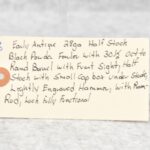 Early Antique 28ga Half Stock
Black Powder Fowler with 30½ Oct to
Round Barrel with Front Sight, Half
Stock with Small Cap box Under Stock,
Lightly Engraved Hammer, with Ram
Rod, Lock Fully Functional